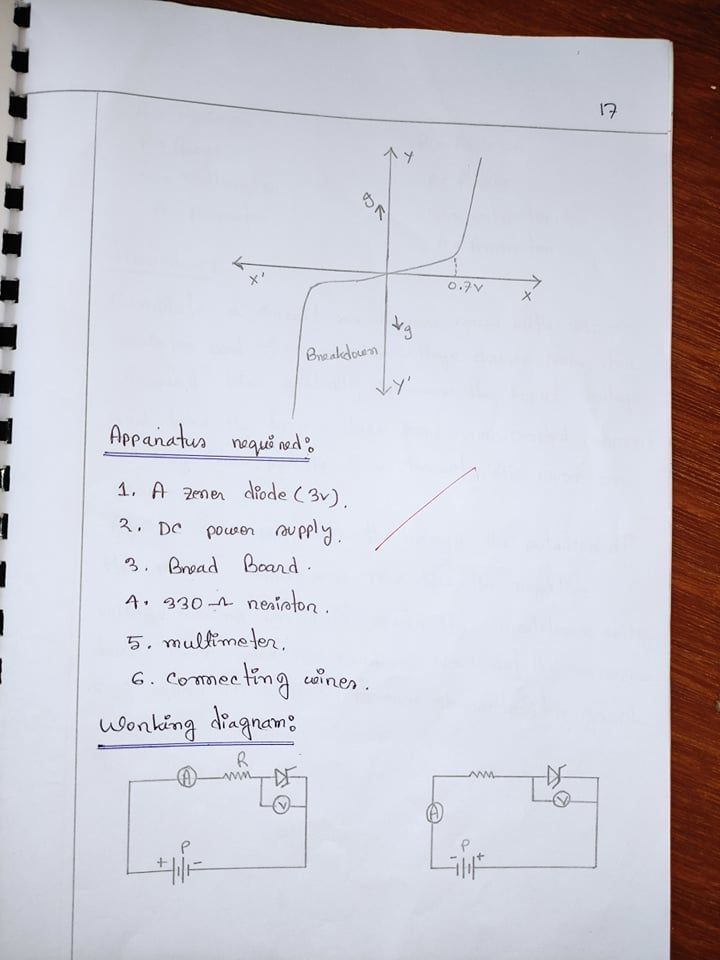 17
Y
g
X'
0.7V
X
g
Breakdown
Y'
Apparatus required:
1. A zener diode (3v).
2. DC power supply.
3. Bread Board.
4. 330 Ω resistor.
5. multimeter.
6. Connecting wires.
Working diagram:
A R
V
P
+ -
A
V
P
- +